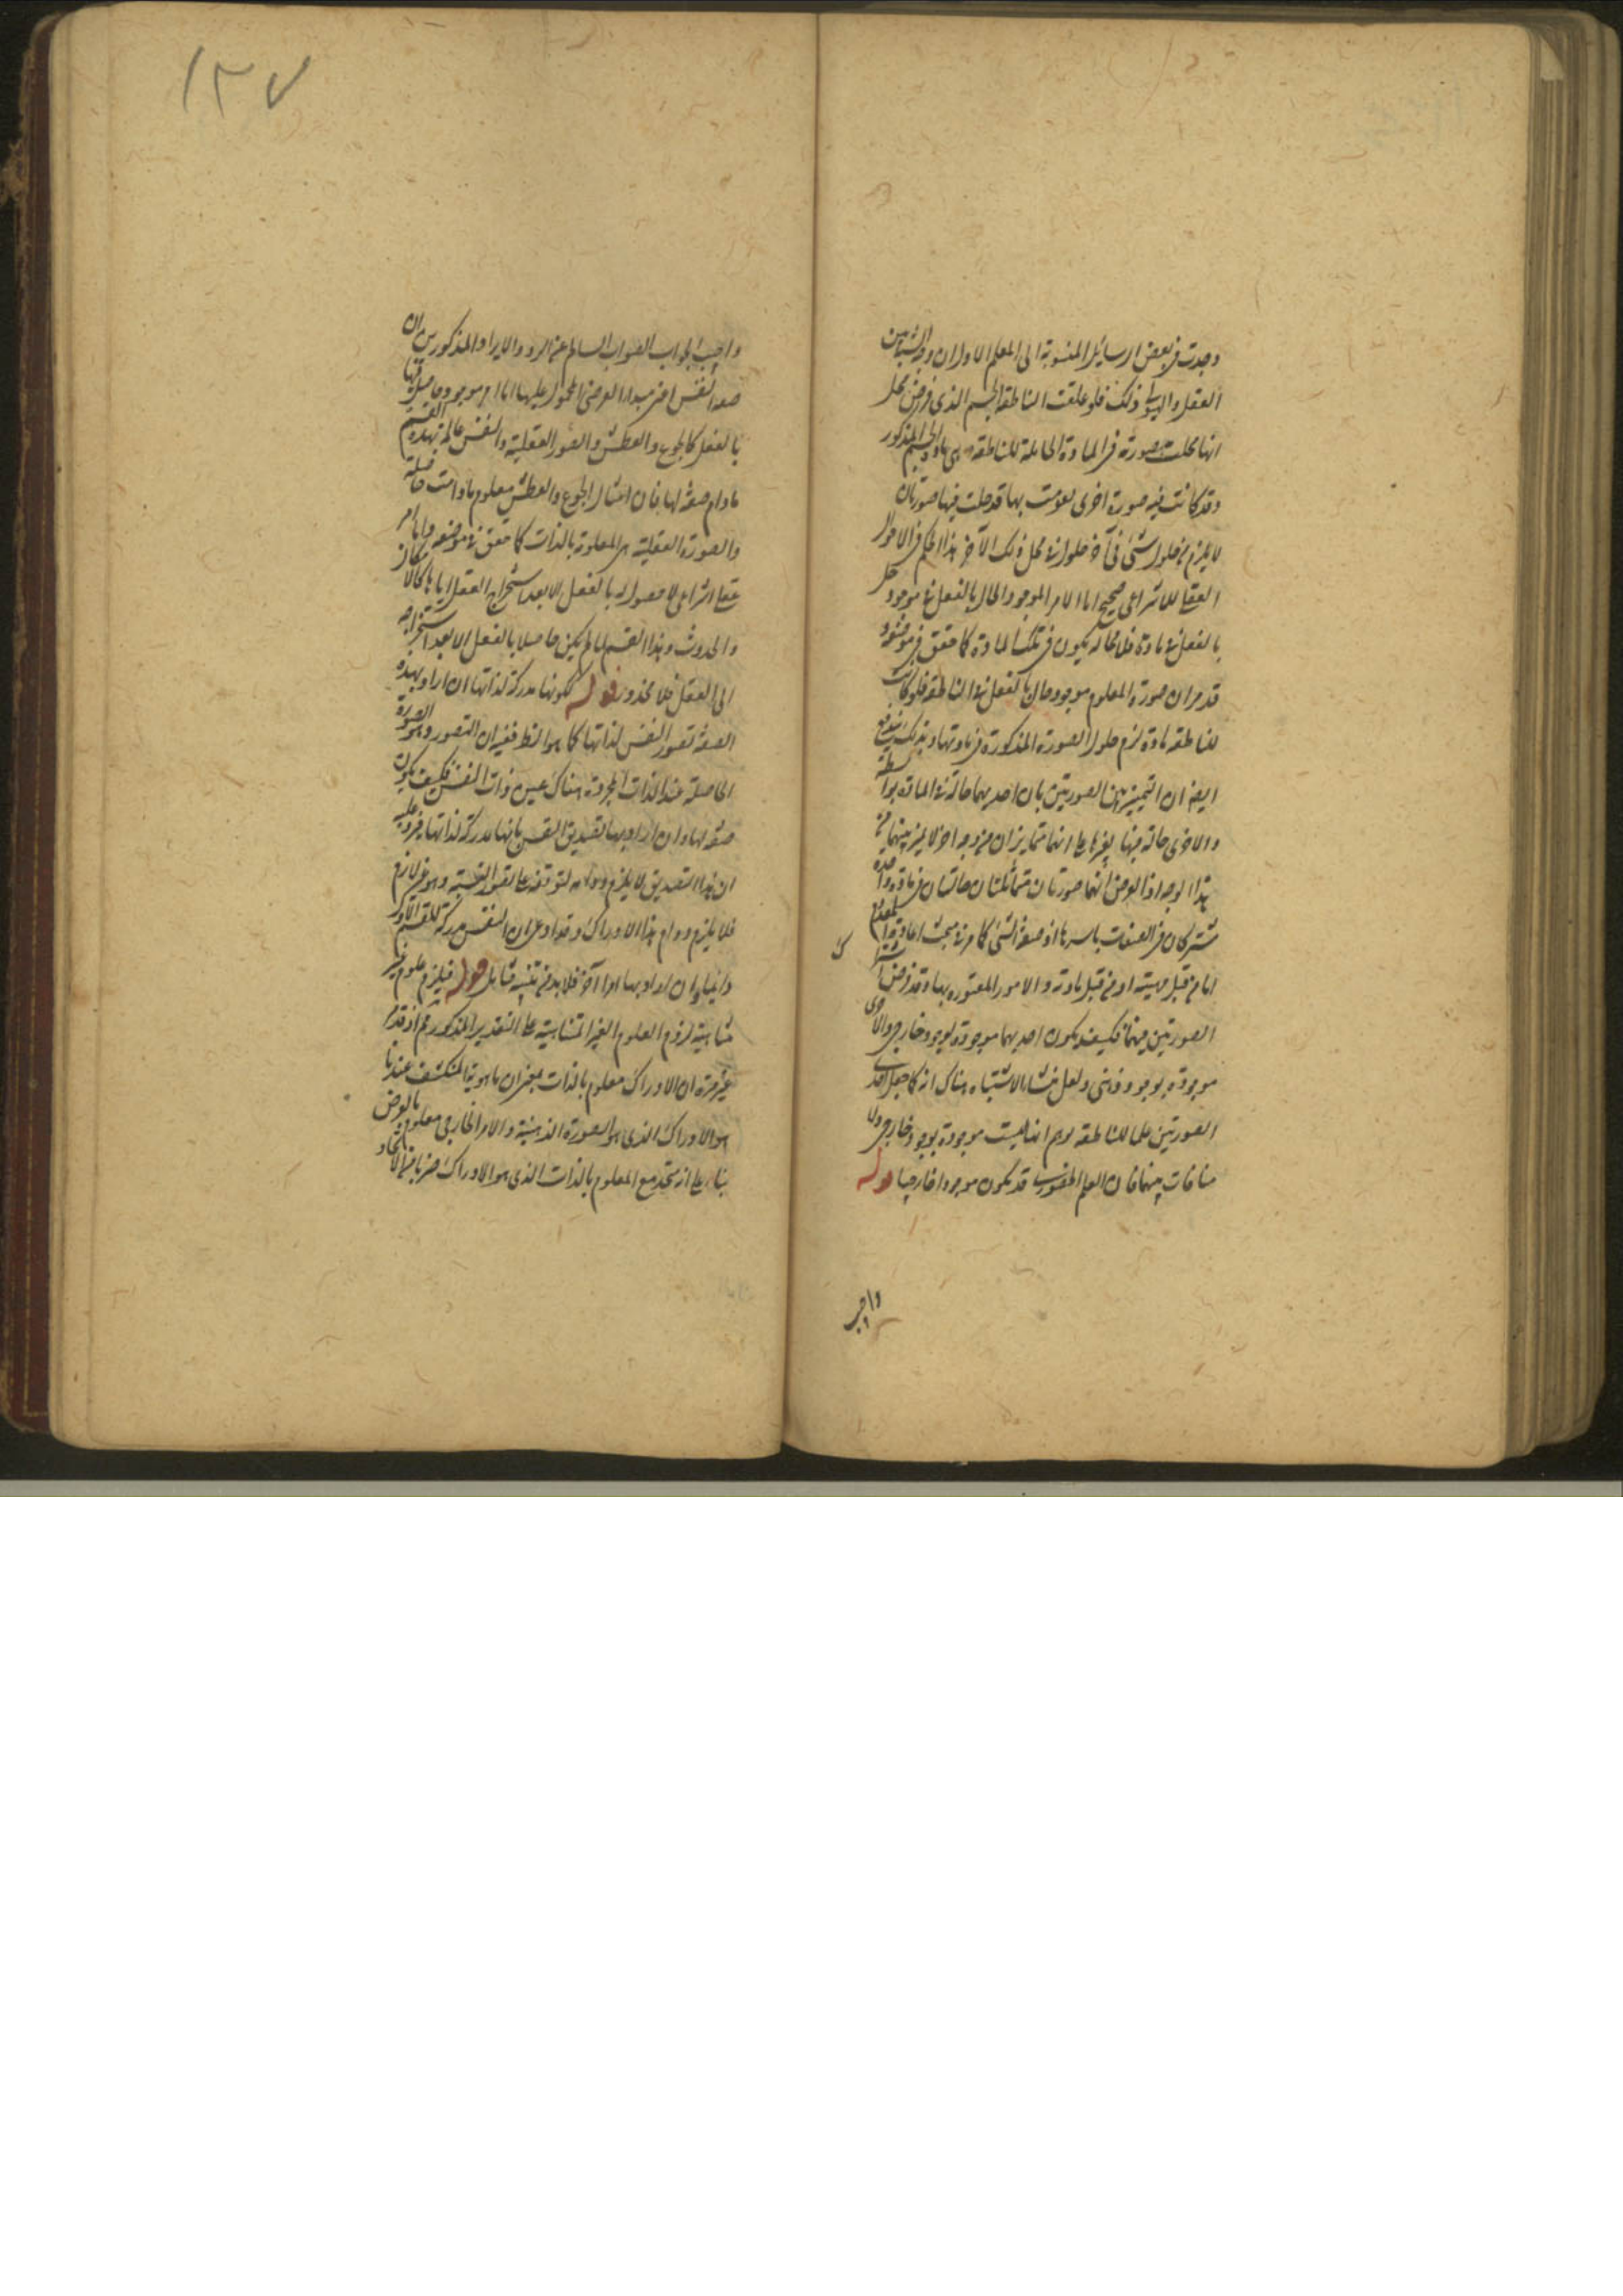 وجدت فى بعض الرسائل المنسوبة الى المعلم الاول ان وجه التباين بين
العقل والهيولى ذلك فلو علقت الناطقة الجسم الذى فرض محل
انها محلت صورة فى المادة الحاملة للناطقة وهى مادة الجسم المذكور
وقد كانت فيه صورة اخرى تقومت بها قد حلت فيها صورتان
لا يلزم من حلول شئ فى آخر حلوله فى محل ذلك الآخر هذا الحكم فى الامور
العقلية الانتراعى صحيح اما الامر الموجود الحال بالفعل فى موجود حل
بالفعل فى مادة فلا محالة يكون فى تلك المادة كما حقق فى موضعه و
قد مر ان صورة المعلوم موجود حال بالفعل فى الناطقة فلو كانت
للناطقة مادة لزم حلول الصورة المذكورة فى مادتها وبذلك يندفع
ايضا ان التمييز بين الصورتين بان احديهما حالة فى المادة بواسطة
والاخرى حالة فيها بغيرها على انهما متمايزان من وجه اخر لا يميز بينهما من
هذا الوجه اذ الفرض انهما صورتان متماثلتان حالتان فى مادة واحدة
مشتركان فى الصفات باسرها اذ صفة الشئ كما مر فى مبحث اعادة المعدوم
اما من قبل مهيته او من قبل مادته والامور المعتورة بها وقد فرض اشتراك
الصورتين فيهما فكيف يكون احديهما موجودة بوجود خارجى والاخرى
موجودة بوجود ذهنى ولعل منشا الاشتباه هناك انه كما جعل احدى
الصورتين علما للناطقة توهم انها ليست موجودة بوجود خارجى ولا
منافات بينهما فان العلم الحضورى قد يكون موجودا خارجيا قوله
واجيب
١٣٧
واجيب الجواب الصواب السالم عن الردود والايراد المذكورين ان
صفة النفس اعنى مبدا العرضى المحمول عليها اما امر موجود حاصل فيها
بالفعل كالجوع والعطش والصور العقلية والنفس عالمة بهذا القسم
مادام صفة لها فان امثال الجوع والعطش معلوم مادامت حاصلة
والصورة العقلية هى المعلومة بالذات كما حقق فى موضعه واما امر
عقلى انتراعى لا حصول له بالفعل الا بعد استخراج العقل اياها كالامكان
والحدوث وهذا القسم لما لم يكن حاصلا بالفعل الا بعد استخراجه
الى العقل فلا محذور قوله لكونها مدركة لذاتها ان اراد بهذه
الصفة تصور النفس لذاتها كما هو الظ ففيه ان التصور وهو الصورة
الحاصلة عند الذات المجردة هناك عين ذات النفس فكيف يكون
صفة لها وان اراد بها تصديق النفس بانها مدركة لذاتها فيرد عليه
ان هذا التصديق لا يلزم دوامه لتوقفه على تصور النسبة وهو غير لازم
فلا يلزم دوام هذا الادراك وقد ادعى ان النفس مدركة للقسم الاول
دائما وان اراد بها امرا آخر فلا بد من تبيينه فتامل قوله فيلزم علوم غير
متناهية لزوم العلوم الغير المتناهية على التقدير المذكور مم اذ قد مر
غير مرة ان الادراك معلوم بالذات بمعنى ان ماهويته المنكشف عندنا
هو الادراك الذى هو الصورة الذهنية والامر الخارجى معلوم بالعرض
بناء على انه متحد مع المعلوم بالذات الذى هو الادراك ضربا من الاتحاد